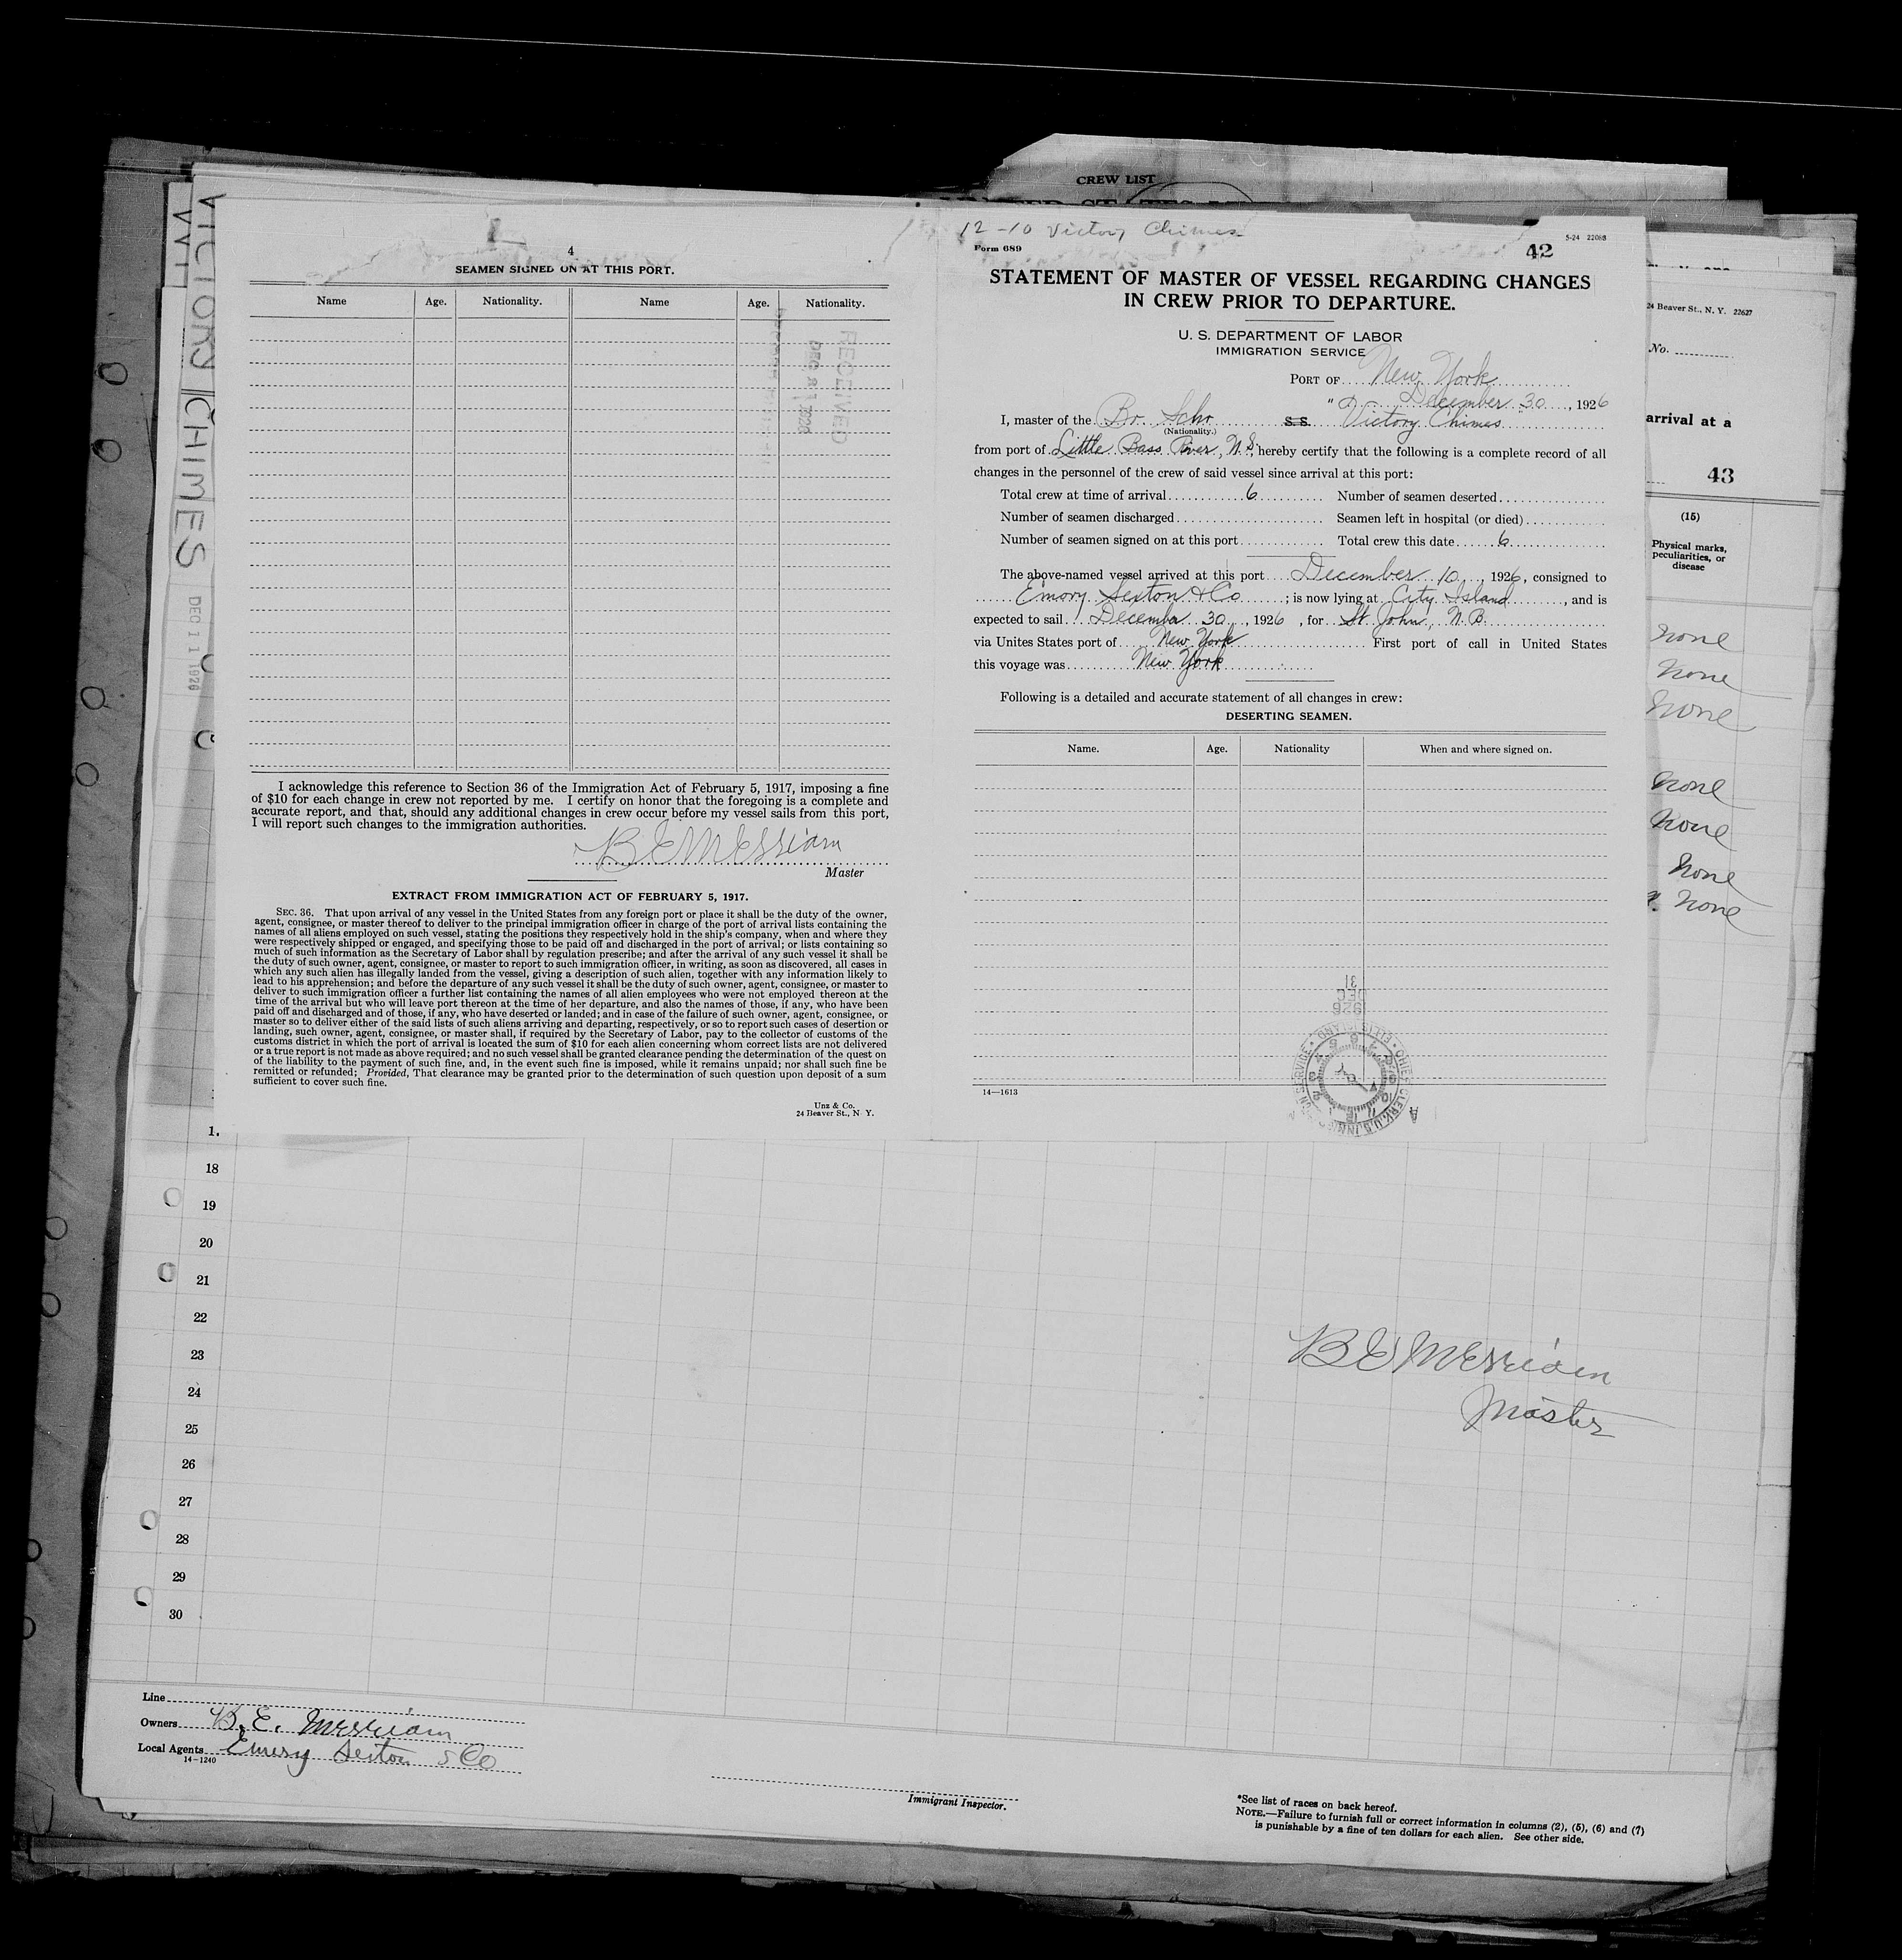 CREW LIST
VICTORY CHIMES
DEC 11 1926
4
SEAMEN SIGNED ON AT THIS PORT.
Name Age. Nationality. Name Age. Nationality.
RECEIVED
I acknowledge this reference to Section 36 of the Immigration Act of February 5, 1917, imposing a fine
of $10 for each change in crew not reported by me. I certify on honor that the foregoing is a complete and
accurate report, and that, should any additional changes in crew occur before my vessel sails from this port,
I will report such changes to the immigration authorities.
B E Merriam
Master
EXTRACT FROM IMMIGRATION ACT OF FEBRUARY 5, 1917.
SEC. 36. That upon arrival of any vessel in the United States from any foreign port or place it shall be the duty of the owner,
agent, consignee, or master thereof to deliver to the principal immigration officer in charge of the port of arrival lists containing the
names of all aliens employed on such vessel, stating the positions they respectively hold in the ship's company, when and where they
were respectively shipped or engaged, and specifying those to be paid off and discharged in the port of arrival; or lists containing so
much of such information as the Secretary of Labor shall by regulation prescribe; and after the arrival of any such vessel it shall be
the duty of such owner, agent, consignee, or master to report to such immigration officer, in writing, as soon as discovered, all cases in
which any such alien has illegally landed from the vessel, giving a description of such alien, together with any information likely to
lead to his apprehension; and before the departure of any such vessel it shall be the duty of such owner, agent, consignee, or master to
deliver to such immigration officer a further list containing the names of all alien employees who were not employed thereon at the
time of the arrival but who will leave port thereon at the time of her departure, and also the names of those, if any, who have been
paid off and discharged and of those, if any, who have deserted or landed; and in case of the failure of such owner, agent, consignee, or
master so to deliver either of the said lists of such aliens arriving and departing, respectively, or so to report such cases of desertion or
landing, such owner, agent, consignee, or master shall, if required by the Secretary of Labor, pay to the collector of customs of the
customs district in which the port of arrival is located the sum of $10 for each alien concerning whom correct lists are not delivered
or a true report is not made as above required; and no such vessel shall be granted clearance pending the determination of the quest on
of the liability to the payment of such fine, and, in the event such fine is imposed, while it remains unpaid; nor shall such fine be
remitted or refunded; Provided, That clearance may be granted prior to the determination of such question upon deposit of a sum
sufficient to cover such fine.
Unz & Co.
24 Beaver St., N. Y.
12-10 Victory Chimes
Form 689
42
5-24 22088
STATEMENT OF MASTER OF VESSEL REGARDING CHANGES
IN CREW PRIOR TO DEPARTURE.
U. S. DEPARTMENT OF LABOR
IMMIGRATION SERVICE
PORT OF New York
December 30, 1926
I, master of the Br. Schr S.S. Victory Chimes
(Nationality.)
from port of Little Bass River, N.S. hereby certify that the following is a complete record of all
changes in the personnel of the crew of said vessel since arrival at this port:
Total crew at time of arrival 6 Number of seamen deserted
Number of seamen discharged Seamen left in hospital (or died)
Number of seamen signed on at this port Total crew this date 6
The above-named vessel arrived at this port December 10, 1926, consigned to
Emory Sexton & Co; is now lying at City Island, and is
expected to sail December 30, 1926, for St. John, N.B.
via Unites States port of New York First port of call in United States
this voyage was New York
Following is a detailed and accurate statement of all changes in crew:
DESERTING SEAMEN.
Name. Age. Nationality When and where signed on.
31
DEC
1926
14—1613
24 Beaver St., N. Y. 22627
No.
arrival at a
43
(15)
Physical marks,
peculiarities, or
disease
none
none
none
none
none
none
none
18
19
20
21
22
23
24
25
26
27
28
29
30
B E Merriam
Master
Line
Owners B. E. Merriam
Local Agents Emery Sexton & Co
14—1240
Immigrant Inspector.
*See list of races on back hereof.
NOTE.—Failure to furnish full or correct information in columns (2), (5), (6) and (7)
is punishable by a fine of ten dollars for each alien. See other side.